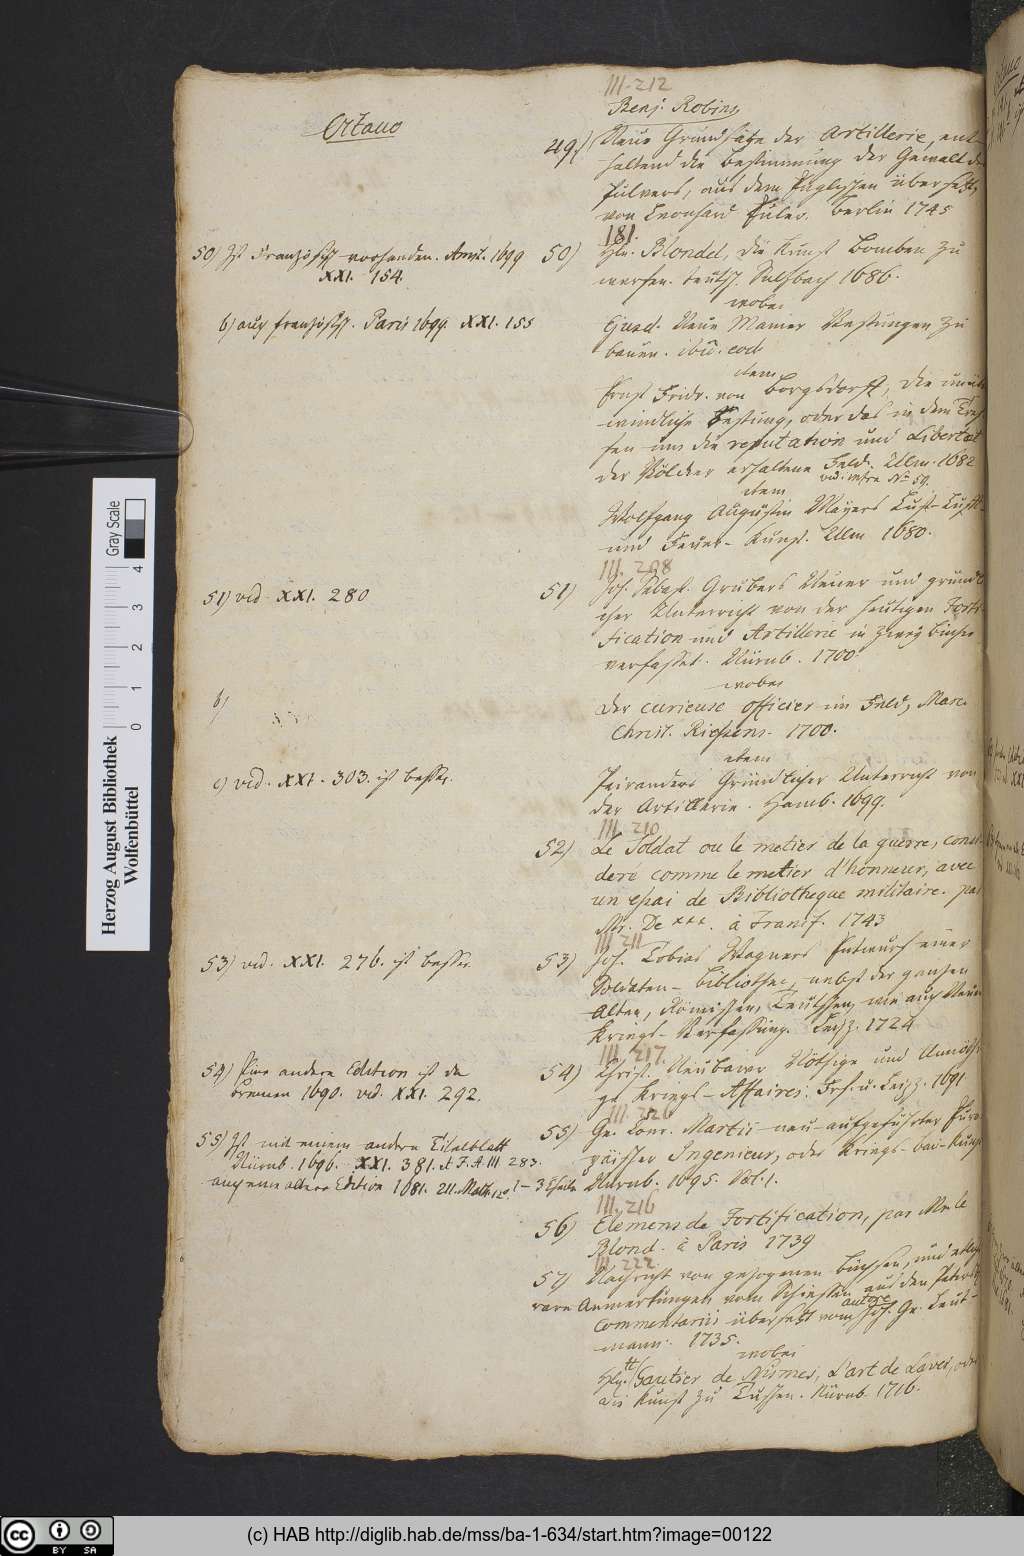 Octavo
III. 212
Benj: Robins
49) Neue Grundsätze der Artillerie, ent-
haltend die Bestimmung der Gewalt des
Pulvers, aus dem Englischen übersetzt
von Leonhard Euler. Berlin 1745
181.
50) Ist Französisch vorhanden. Amst. 1699
XXI. 154.
50) Hln. Blondel, die Kunst Bomben zu
werfen. teutsch. Sulzbach 1686.
wobei
b) auch französisch. Paris 1699. XXI. 155
Ejusd. Neue Manier Vestungen zu
bauen. ibid. eod.
item
Ernst Fridr. von Borgsdorff, die unüb
windliche Festung, oder das in dem Tref
fen um die reputation und Libertät
der Völcker erhaltene Feld. Ulm. 1682
vid. infra No 59.
item
Wolfgang Augustin Mayers Lust-Luft-
und Feuer-Kunst. Ulm 1680.
III. 208
51) vid. XXI. 280
51) Joh. Sebast. Grubers Neuer und gründl
cher Unterricht von der heutigen Forti-
fication und Artillerie in zwey Bücher
verfasset. Nürnb. 1700.
wobei
b)
Der curieuse Officier im Feld, Marc.
Christ. Riesens. 1700.
item
c) vid. XXI. 303. ist besser.
Peiranders Gründlicher Unterricht von
der Artillerie. Hamb. 1699.
III. 210
52) Le Soldat ou le metier de la guerre, consi-
deré comme le metier d'honneur, avec
un essai de Bibliotheque militaire. par
Mr. De ***. à Francf. 1743
III. 211
53) vid. XXI. 276. ist besser.
53) Joh. Tobias Wagners Entwurf einer
Soldaten-Bibliothec, nebst der ganzen
Alten, Römischen, Teutschen, wie auch Neuen
Kriegs-Verfassung. Leipz. 1724
III. 217.
54) Eine andere Edition ist da
Bremen 1690. vid. XXI. 292.
54) Christ. Neubauer Nöthige und Annöthi
ge Kriegs-Affaires. Frf. u. Leipz. 1691
III. 226
55) Ist mit einem andern Titelblatt
Nürnb. 1696. XXI. 381. it. F. A. III 283.
auch eine ältere Edition 1681. 211. Math. 12o. 1-3 Theile
55) Ge. Conr. Martii neu-aufgeführter Euro
päischer Ingenieur, oder Kriegs-bau-Kunst
Nürnb. 1695. Vol. 1.
III. 216
56) Elemens de Fortification, par Mr. le
Blond. à Paris 1739
III. 222
57) Nachricht von gezogenen Büchsen, und etliche
rare Anmerkungen vom Schiessen aus den Petersb.
Commentariis übersetzt vom autore Joh. Ge. Leut-
mann. 1735.
wobei
Gautier de Nismes, L'art de Laver, oder
die Kunst zu Tuschen. Nürnb. 1716.
Herzog August Bibliothek
Wolfenbüttel
Gray Scale
0 1 2 3 4
cc BY SA
(c) HAB http://diglib.hab.de/mss/ba-1-634/start.htm?image=00122